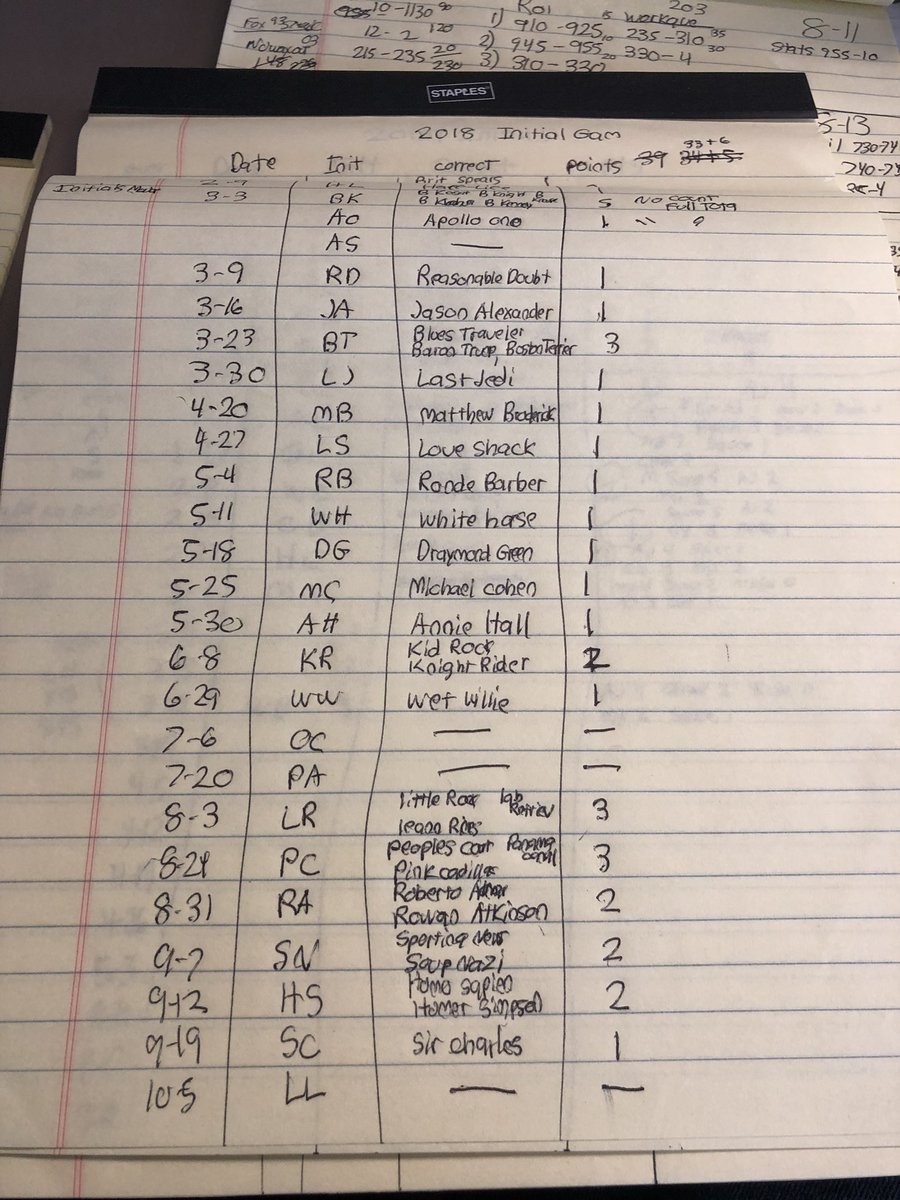 10-1130 90 Roi 203
Fox 93 12-2 120 1) 910-925 15 workque 8-11
03 2) 945-955 10 235-310 35 Stats 955-10
215-235 20 3) 310-330 20 330-4 30
230
STAPLES
5-13
730-74
240-2
-4
2018 Initial Gam
33+6
Date Init correct points 39 34+5
Brit Spears
3-3 BK B Knight B 5 No count Full Total
AO Apollo one 1 " ?
AS —
3-9 RD Reasonable Doubt 1
3-16 JA Jason Alexander 1
3-23 BT Blues Traveler
Baron Trup, Boston Terrier 3
3-30 LJ Last Jedi 1
4-20 MB Matthew Broderick 1
4-27 LS Love Shack 1
5-4 RB Ronde Barber 1
5-11 WH White hase 1
5-18 DG Draymond Green 1
5-25 MC Michael cohen 1
5-30 AH Annie Hall 1
6-8 KR Kid Rock
Knight Rider 2
6-29 WW Wet Willie 1
7-6 OC — —
7-20 PA — —
8-3 LR little Rock lab Retriev
leann Rims 3
8-24 PC peoples court Panama canal
Pink cadillac 3
8-31 RA Roberto
Rowan Atkinson 2
9-7 SN Sporting News
Soup Nazi 2
9-12 HS Homo sapien
Homer Simpson 2
9-19 SC Sir charles 1
10-5 LL — —